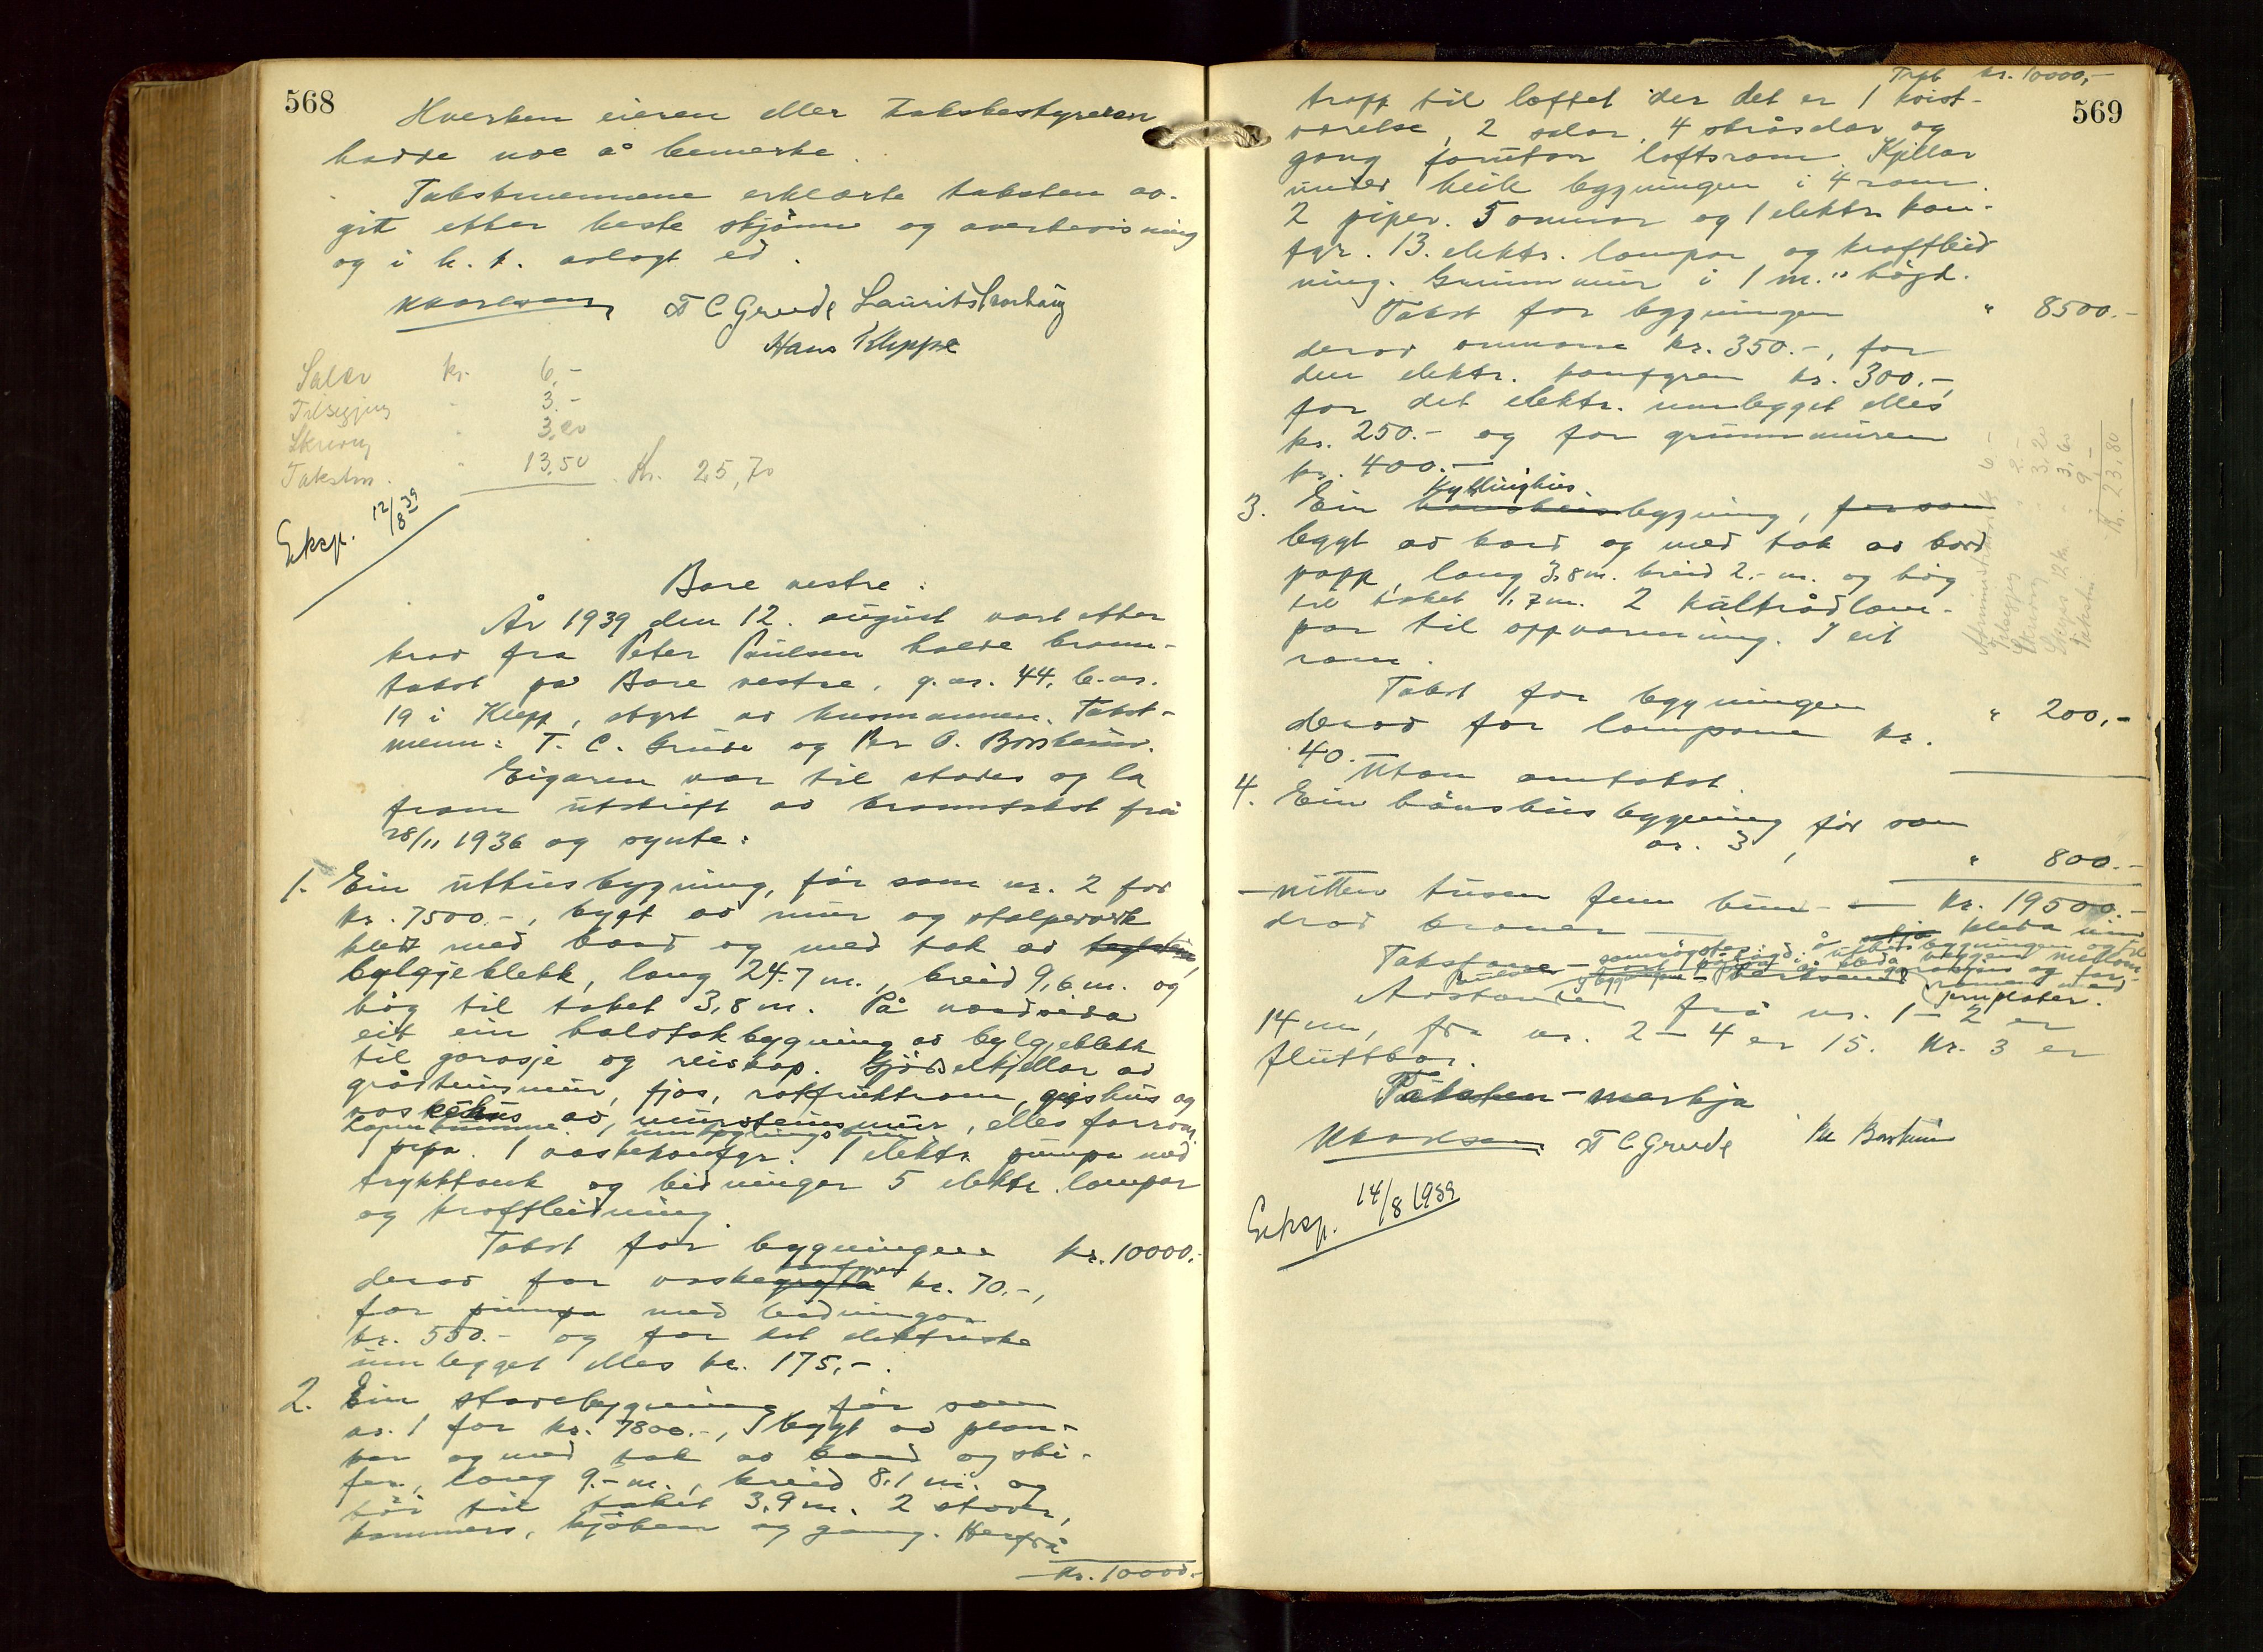 568
Hverken eieren eller takstbestyreren
hadde noe å bemerke.
Takstmennene erklærte taksten av-
git efter beste skjønn og overbevisning
og i h. t. avlagt ed.
T C Grude Laurits
Hans Kleppe
Salær kr. 6,-
Tilsegjing " 3.-
Skriving " 3,20
Takstm. " 13,50 Kr. 25,70
Eksp. 12/8 39
Bore vestre:
År 1939 den 12. august vart etter
krav fra Peter Paulsen halde brann-
takst på Bore vestre, g.nr. 44, b.nr.
19 i Klepp, styrt av lensmannen. Takst-
menn: T. C. Grude og Per O. Borsheim.
Eigaren var til stades og la
fram utskrift av branntakst frå
28/11 1936 og synte:
1. Ein uthusbygning, før som nr. 2 for
kr. 7500.-, bygt av mur og stolpeverk
kledt med bord og med tak av
bylgjeblekk, lang 24.7 m., breid 9,6 m. og
høg til taket 3,8 m. På nordsida
eit ein halvtakbygning av bylgjeblekk
til garasje og reiskap. Gjødselkjellar av
gråsteinsmur, fjos, rotfruktrom, grishus og
vaskehus av mursteinsmur, elles forrom
1 pipa. 1 vaskekomfyr. 1 elektr. pumpa med
trykktank og leidninger 5 elektr. lampor
og kraftleidning.
Takst for bygningen kr. 10000.-
derav for vaskekomfyren kr. 70.-,
for pumpa med leidningar
kr. 550.- og for det elektriske
innlegget elles kr. 175,-.
2. Ein stovebygning før som
nr. 1 for kr. 7800.-, bygt av plan-
kar og med tak av bord og ski-
fer, lang 9.- m., breid 8,1 m. og
høg til taket 3,9 m. 2 stover,
kammers, kjøken og gang. Herfrå
kr. 10000.-
569
Trpt kr. 10000,-
trapp til loftet der det er 1 kvist-
værelse, 2 salar, 4 skråsalar og
gang forutan loftsrom. Kjellar
under heile bygningen i 4 rom.
2 piper. 5 omnar og 1 elektr. kom-
fyr. 13. elektr. lampor og kraftleid
ning. Grunnmur i 1 m.s høgd.
Takst for bygningen " 8500.-
derav omnane kr. 350.-, for
den elektr. komfyren kr. 300,-,
for det elektr. innlegget elles
kr. 250.- og for grunnmuren
kr. 400.-
kyllinghus
3. Ein hønsehusbygning, før som
bygt av bord og med tak av bord
papp, lang 3,8 m. breid 2.- m. og høg
til taket 1,7 m. 2 lam-
par til oppvarming. I eit
rom.
Takst for bygningen " 200,-
derav for lampone kr.
40.
Utan omtakst.
4. Ein hønshusbygning, før som
nr. 3, " 800.-
- nitten tusen fem hun- — kr. 19500.-
drad kroner —
Avstanden frå nr. 1 - 2 er
14 m, frå nr. 2 - 4 er 15. Nr. 3 er
flyttbar.
T C Grude Per Borsheim
Eksp. 14/8 1939
Administrasjon 6.-
Tilsegjing " 2.-
Skriving " 3,20
Skyss " 3,60
Takstm. " 9.-
Kr. 23,80